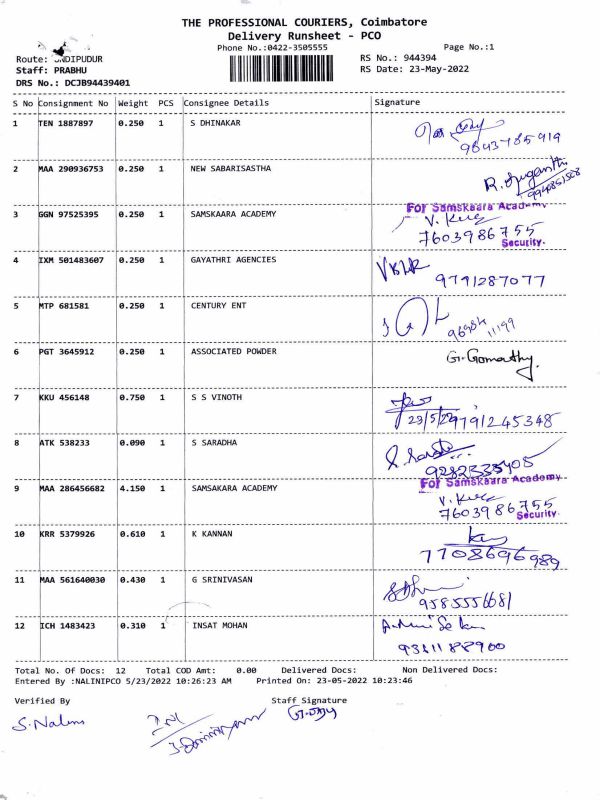 THE PROFESSIONAL COURIERS, Coimbatore
Delivery Runsheet - PCO
Phone No.:0422-3505555 Page No.:1
Route: UNDIPUDUR RS No.: 944394
Staff: PRABHU RS Date: 23-May-2022
DRS No.: DCJB94439401
S No Consignment No Weight PCS Consignee Details Signature
1 TEN 1887897 0.250 1 S DHINAKAR
9843785919
2 MAA 290936753 0.250 1 NEW SABARISASTHA
R. Suganthi
For Samskaara Academy
3 GGN 97525395 0.250 1 SAMSKAARA ACADEMY
7603986755
Security.
4 IXM 501483607 0.250 1 GAYATHRI AGENCIES
9791287077
5 MTP 681581 0.250 1 CENTURY ENT
96984 11199
6 PGT 3645912 0.250 1 ASSOCIATED POWDER G. Gomathy.
7 KKU 456148 0.750 1 S S VINOTH
23/5/22 9791245348
8 ATK 538233 0.090 1 S SARADHA
For Samskaara Academy
9 MAA 286456682 4.150 1 SAMSAKARA ACADEMY
7603986755
Security.
10 KRR 5379926 0.610 1 K KANNAN
7708696989
11 MAA 561640030 0.430 1 G SRINIVASAN
9585556681
12 ICH 1483423 0.310 1 INSAT MOHAN
Total No. Of Docs: 12 Total COD Amt: 0.00 Delivered Docs: Non Delivered Docs:
Entered By :NALINIPCO 5/23/2022 10:26:23 AM Printed On: 23-05-2022 10:23:46
Verified By Staff Signature
S. Nalini